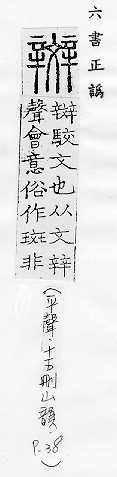 六書正譌
辬
辬駮文也从文辡
聲會意俗作斑非
(平聲．十五刪山韻．P.38)